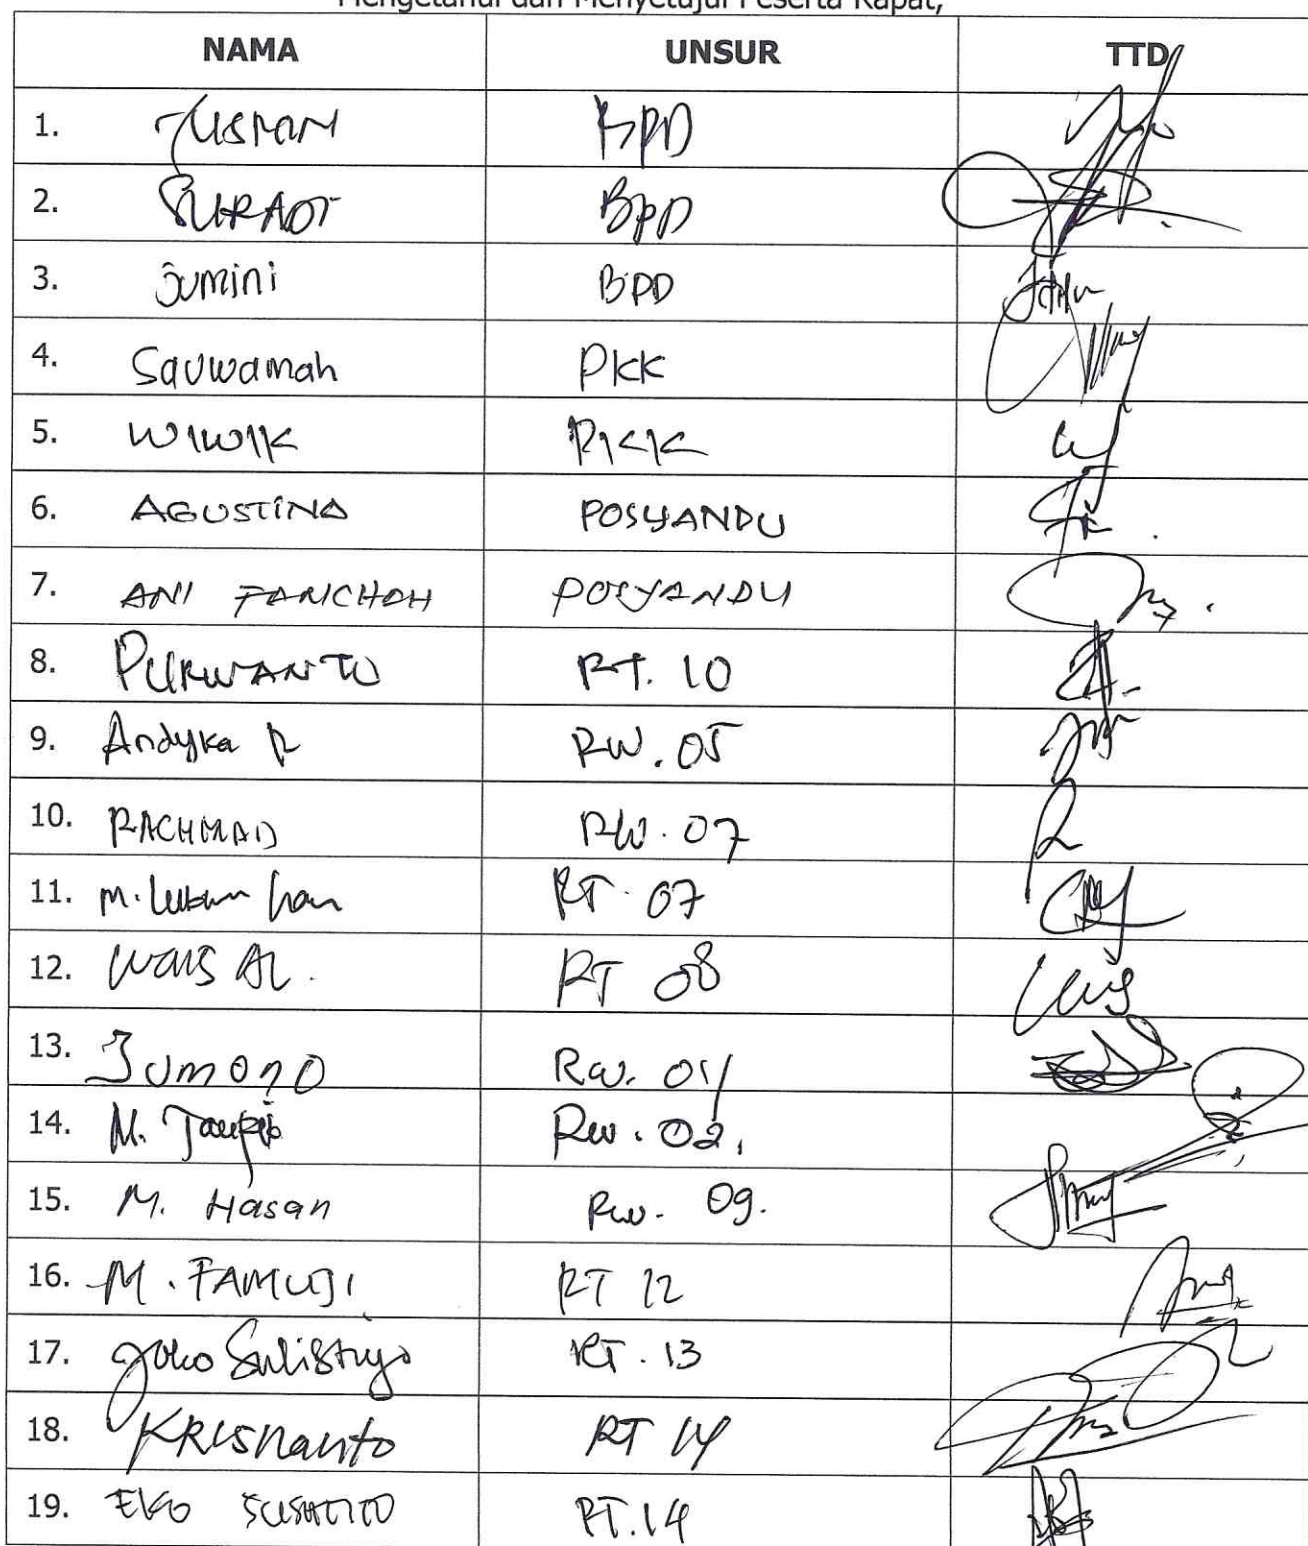 Mengetahui dan Menyetujui Peserta Rapat,
NAMA UNSUR TTD
1. JUSMAN BPD
2. BPD
3. Jumini BPD
4. Sauwamah PKK
5. WIWIK PKK
6. AGUSTINA POSYANDU
7. ANI FARICHOH POSYANDU
8. PURWANTO RT. 10
9. Andyka P RW. 05
10. RACHMAD RW. 07
11. M. RT. 07
12. RT 08
13. Jumono RW. 04
14. M. Taufiq RW. 02.
15. M. Hasan RW. 09.
16. M. FAMUJI RT 12
17. Joko Sulistiyo RT. 13
18. KRISnanto RT 14
19. EKO RT. 14